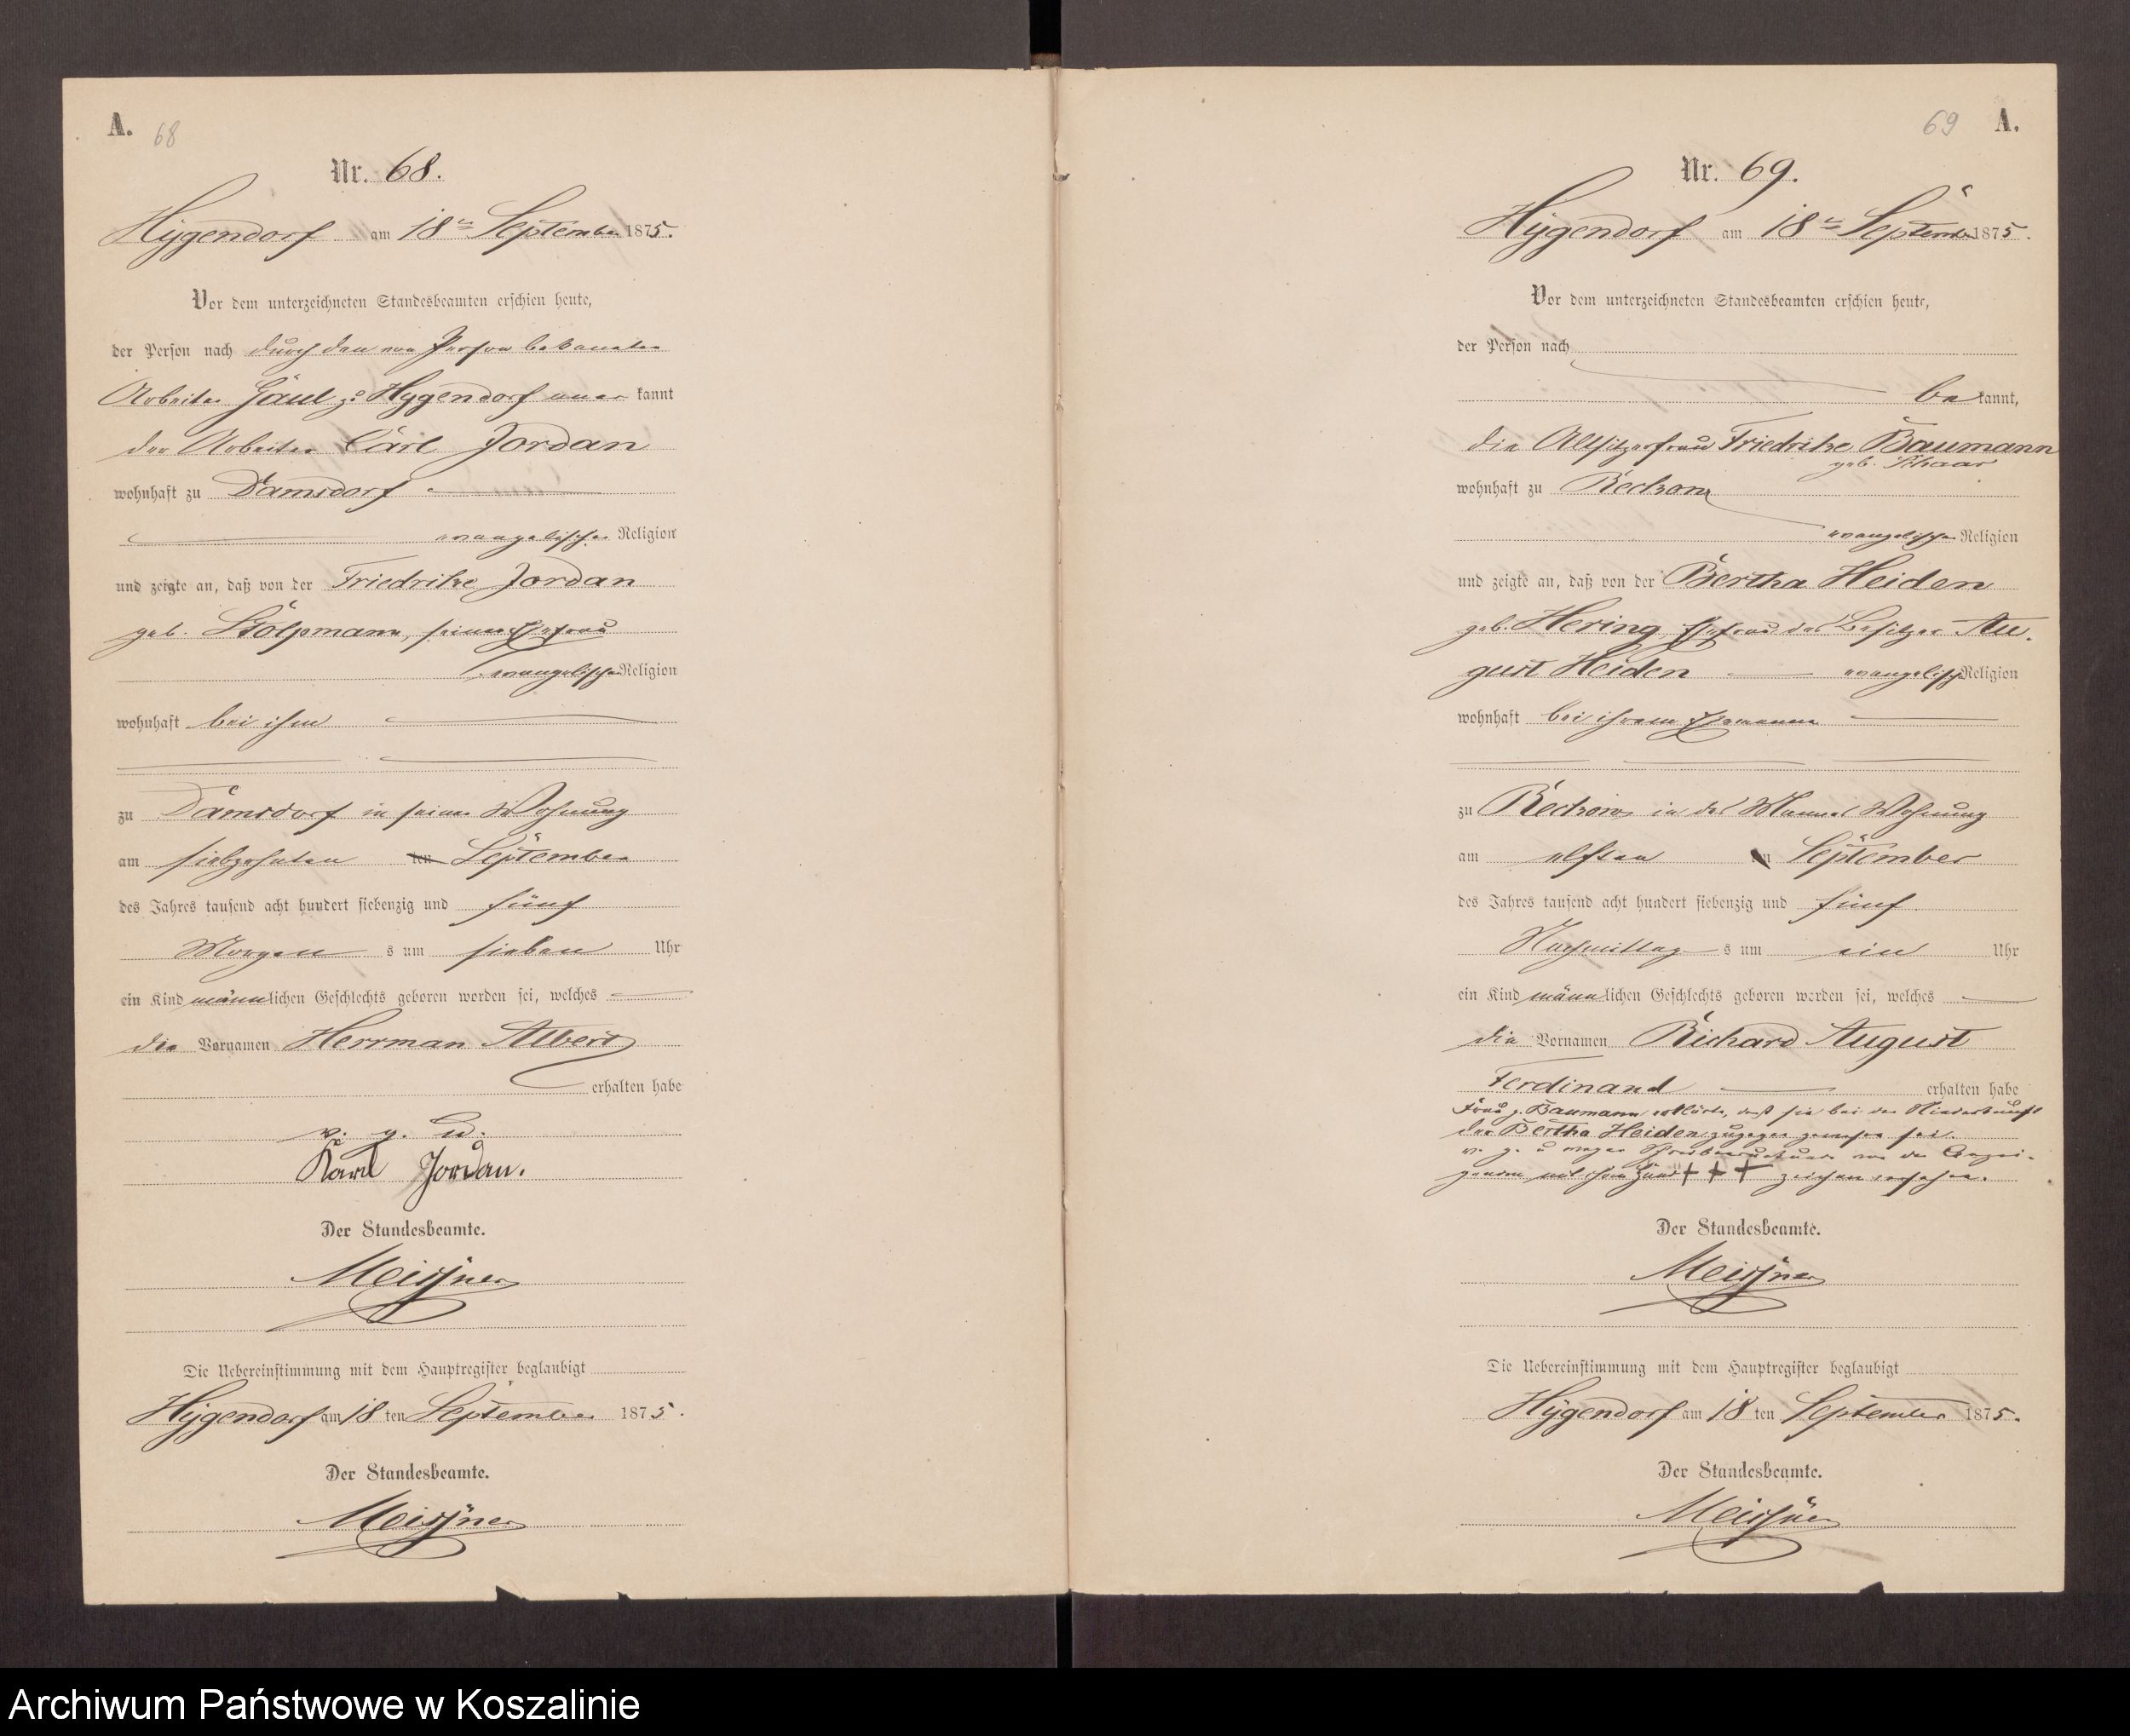 A. 68
Nr. 68.
Hygendorf am 18ten September 1875.
Vor dem unterzeichneten Standesbeamten erschien heute,
der Person nach durch den von Person bekannten
Arbeiter Gaul zu Hygendorf aner kannt
der Arbeiter Carl Jordan
wohnhaft zu Damsdorf
evangelischer Religion
und zeigte an, daß von der Friedrike Jordan
geb. Stolpmann, seiner Ehefrau
evangelischer Religion
wohnhaft bei ihm
zu Damsdorf in seiner Wohnung
am siebzehnten ten September
des Jahres tausend acht hundert siebenzig und fünf
Morgen s um sieben Uhr
ein Kind männlichen Geschlechts geboren worden sei, welches
die Vornamen Herrman Albert
erhalten habe
v. g. u.
Karl Jordan.
Der Standesbeamte.
Meissner
Die Uebereinstimmung mit dem Hauptregister beglaubigt
Hygendorf am 18 ten September 1875.
Der Standesbeamte.
Meissner
69 A.
Nr. 69.
Hygendorf am 18ten September 1875.
Vor dem unterzeichneten Standesbeamten erschien heute,
der Person nach
be kannt,
die Altsitzerfrau Friedrike Baumann
geb. Schaar
wohnhaft zu Reckow
evangelischer Religion
und zeigte an, daß von der Bertha Heiden
geb. Hering, Ehefrau des Besitzer Au-
gust Heiden evangelisch Religion
wohnhaft bei ihrem Ehemann
zu Reckow in des Mannes Wohnung
am elften ten September
des Jahres tausend acht hundert siebenzig und fünf
Nachmittag s um ein Uhr
ein Kind männlichen Geschlechts geboren worden sei, welches
die Vornamen Richard August
Ferdinand erhalten habe
Frau p. Baumann erklärte, daß sie bei der Niederkunft
der Bertha Heiden zugegen gewesen sei.
v. g. u wegen Schreibensunkunde von der Anzei-
genden mit ihrem Hand +++ zeichen versehen.
Der Standesbeamte.
Meissner
Die Uebereinstimmung mit dem Hauptregister beglaubigt
Hygendorf am 18 ten September 1875.
Der Standesbeamte.
Meissner
Archiwum Państwowe w Koszalinie